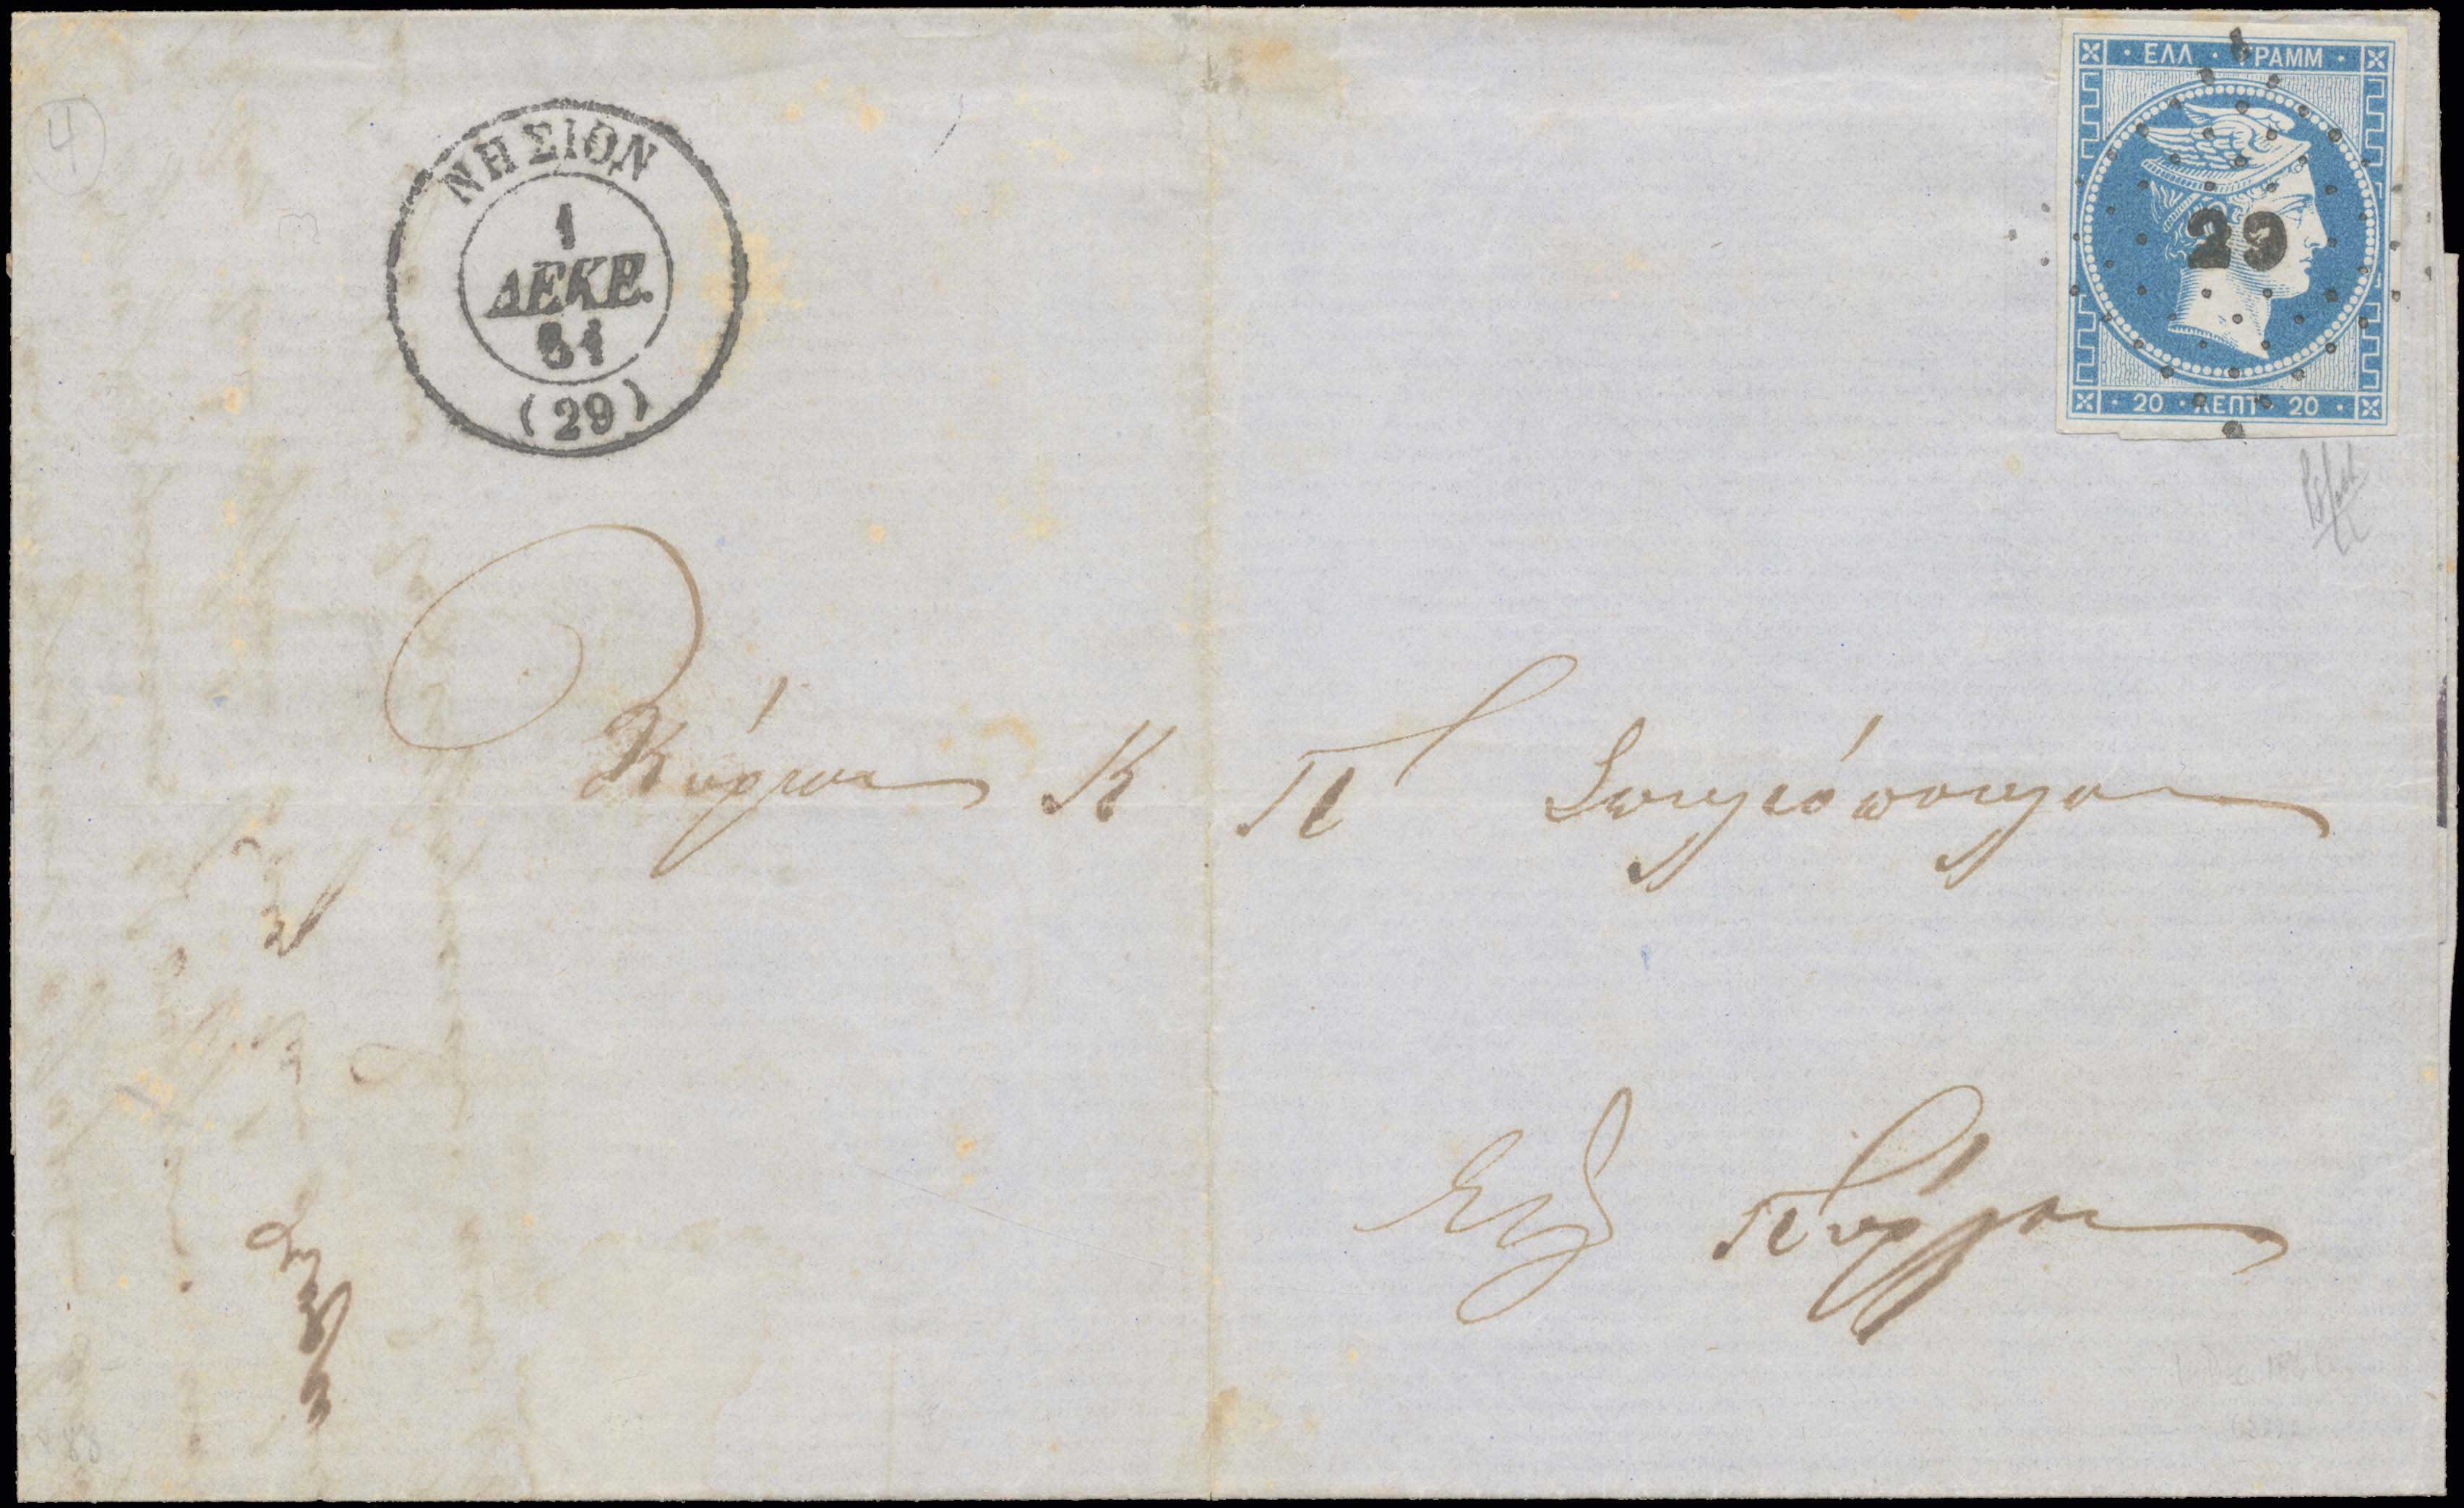 4
ΝΗΣΙΟΝ
1
ΔΕΚΕ.
61
(29)
ΕΛΛ · ΓΡΑΜΜ
29
20 · ΛΕΠΤ · 20
Κύριον Κ Π Σπηλιόπουλον
Εἰς Πύργον